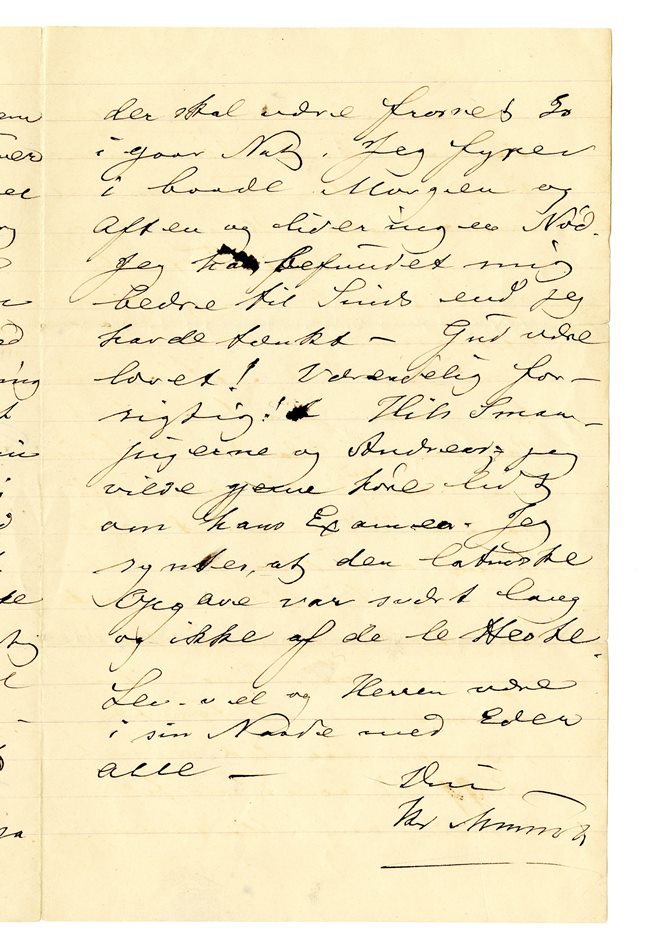 der skal være frosset Is
i gaar Nat. Jeg fyrer
i baade Morgen og
Aften og lider ingen Nød.
Jeg har befundet mig
bedre til Sinds end jeg
havde tænkt – Gud være
lovet! Vær endelig for-
sigtig! Hils Smaa-
pigerne og Andreas, jeg
vilde gerne høre lidt
om hans Examen. Jeg
syntes, at den latinske
Opgave var svært lang
og ikke af de letteste.
Lev vel og Herren være
i sin Naade med Eder
alle –
Din
Chr Munch